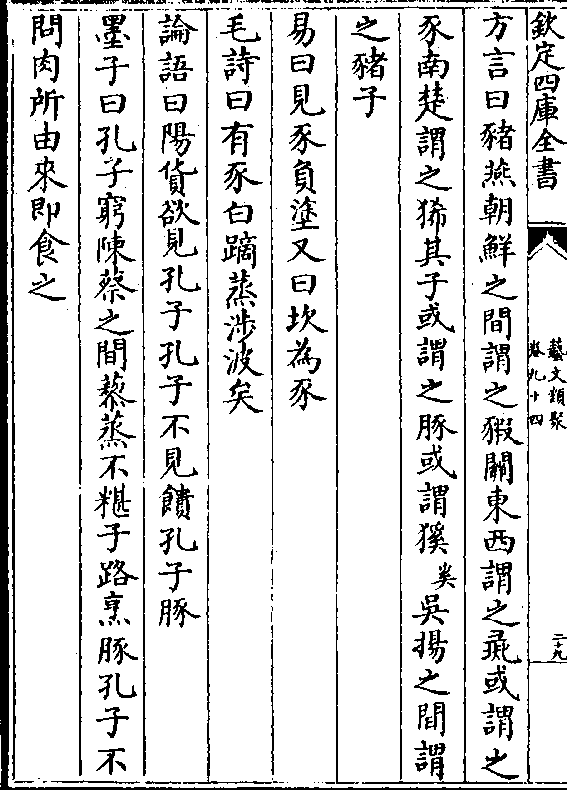 欽定四庫全書
藝文類聚
卷九十四
二十九
方言曰豬燕朝鮮之間謂之豭關東西謂之彘或謂之
豕南楚謂之豨其子或謂之豚或謂貕奚吳揚之間謂
之豬子
易曰見豕負塗又曰坎為豕
毛詩曰有豕白蹢蒸涉波矣
論語曰陽貨欲見孔子孔子不見饋孔子豚
墨子曰孔子窮陳蔡之間藜蒸不糂子路烹豚孔子不
問肉所由來即食之